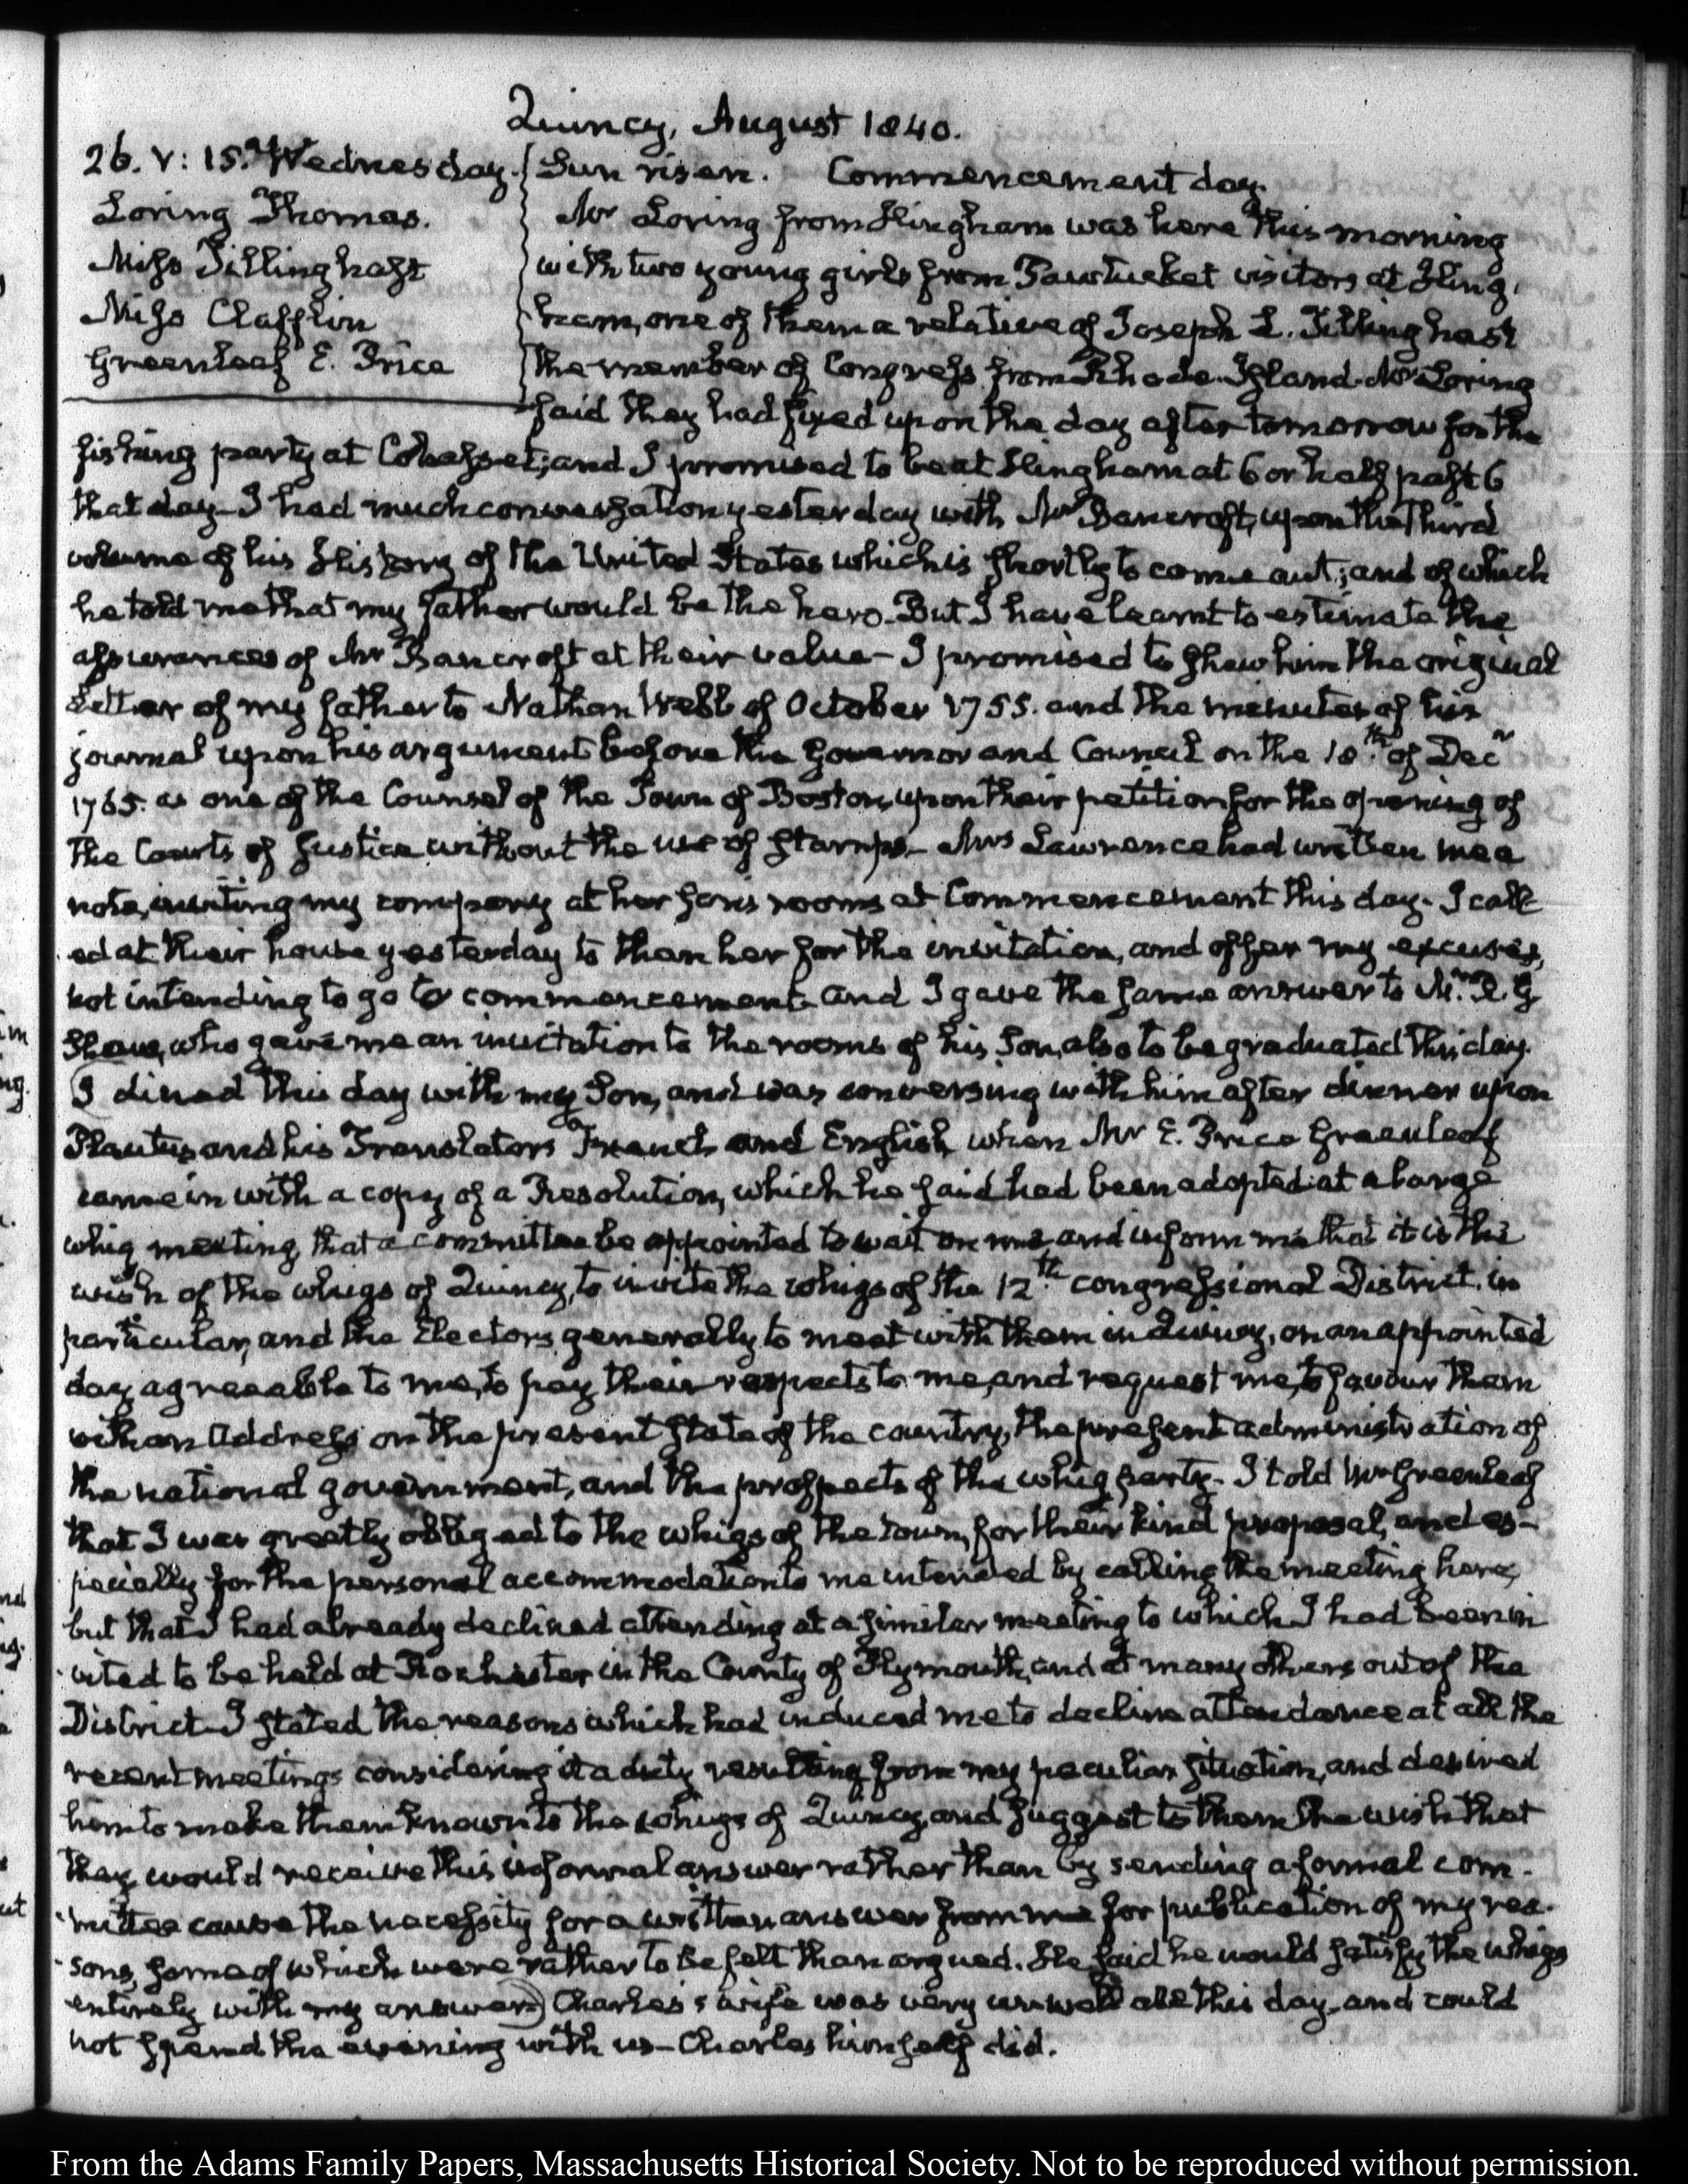 Quincy, August 1840.
26. V: 15. Wednesday. Sun risen. Commencement day.
Loring Thomas. Mr Loring from Hingham was here this morning
Miss Tillinghast with two young girls from Pawtucket visitors at Hing-
Miss Clafflin ham, one of them a relative of Joseph L. Tillinghast
Greenleaf E. Price the member of Congress from Rhode-Island. Mr Loring
said they had fixed upon the day after tomorrow for the
fishing party at Cohasset; and I promised to be at Hingham at 6 or half past 6
that day- I had much conversation yesterday with Mr Bancroft, upon the third
volume of his History of the United States which is shortly to come out; and of which
he told me that my father would be the hero. But I have learnt to estimate the
assurances of Mr Bancroft at their value- I promised to shew him the original
Letter of my father to Nathan Webb of October 1755. and the minutes of his
journal upon his argument before the Governor and Council on the 18th of Decr
1765. as one of the Counsel of the Town of Boston, upon their petition for the opening of
the Courts of Justice without the use of stamps- Mrs Lawrence had written me a
note, inviting my company at her son's rooms at Commencement this day- I call-
ed at their house yesterday to than her for the invitation, and offer my excuses,
not intending to go to commencement- and I gave the same answer to Mr R. G.
Shaw, who gave me an invitation to the rooms of his Son, also to be graduated this day.
I dined this day with my Son, and was conversing with him after dinner upon
Plautus and his Translators French and English when Mr E. Price Greenleaf
came in with a copy of a Resolution, which he said had been adopted at a large
whig meeting that a committee be appointed to wait on me and inform me that it is the
wish of the whigs of Quincy, to invite the whigs of the 12th congressional District in
particular, and the Electors generally to meet with them in Quincy, on an appointed
day agreeable to me, to pay their respects to me, and request me, to favour them
with an Address on the present state of the country, the present administration of
the national government, and the prospects of the whig party- I told Mr Greenleaf
that I was greatly obliged to the whigs of the town, for their kind proposal, and es-
pecially for the personal accommodation to me intended by calling the meeting here,
but that I had already declined attending at a similar meeting to which I had been in-
vited to be held at Rochester in the County of Plymouth, and at many others out of the
District- I stated the reasons which had induced me to decline attendance at all the
recent meetings considering it a duty resulting from my peculiar situation, and desired
him to make them known to the whigs of Quincy, and suggest to them the wish that
they would receive this informal answer rather than by sending a formal com-
mittee cause the necessity for a written answer from me for publication of my rea-
sons, some of which were rather to be felt than argued. He said he would satisfy the whigs
entirely with my answer) Charles's wife was very unwell all this day, and could
not spend the evening with us- Charles himself did.
From the Adams Family Papers, Massachusetts Historical Society. Not to be reproduced without permission.